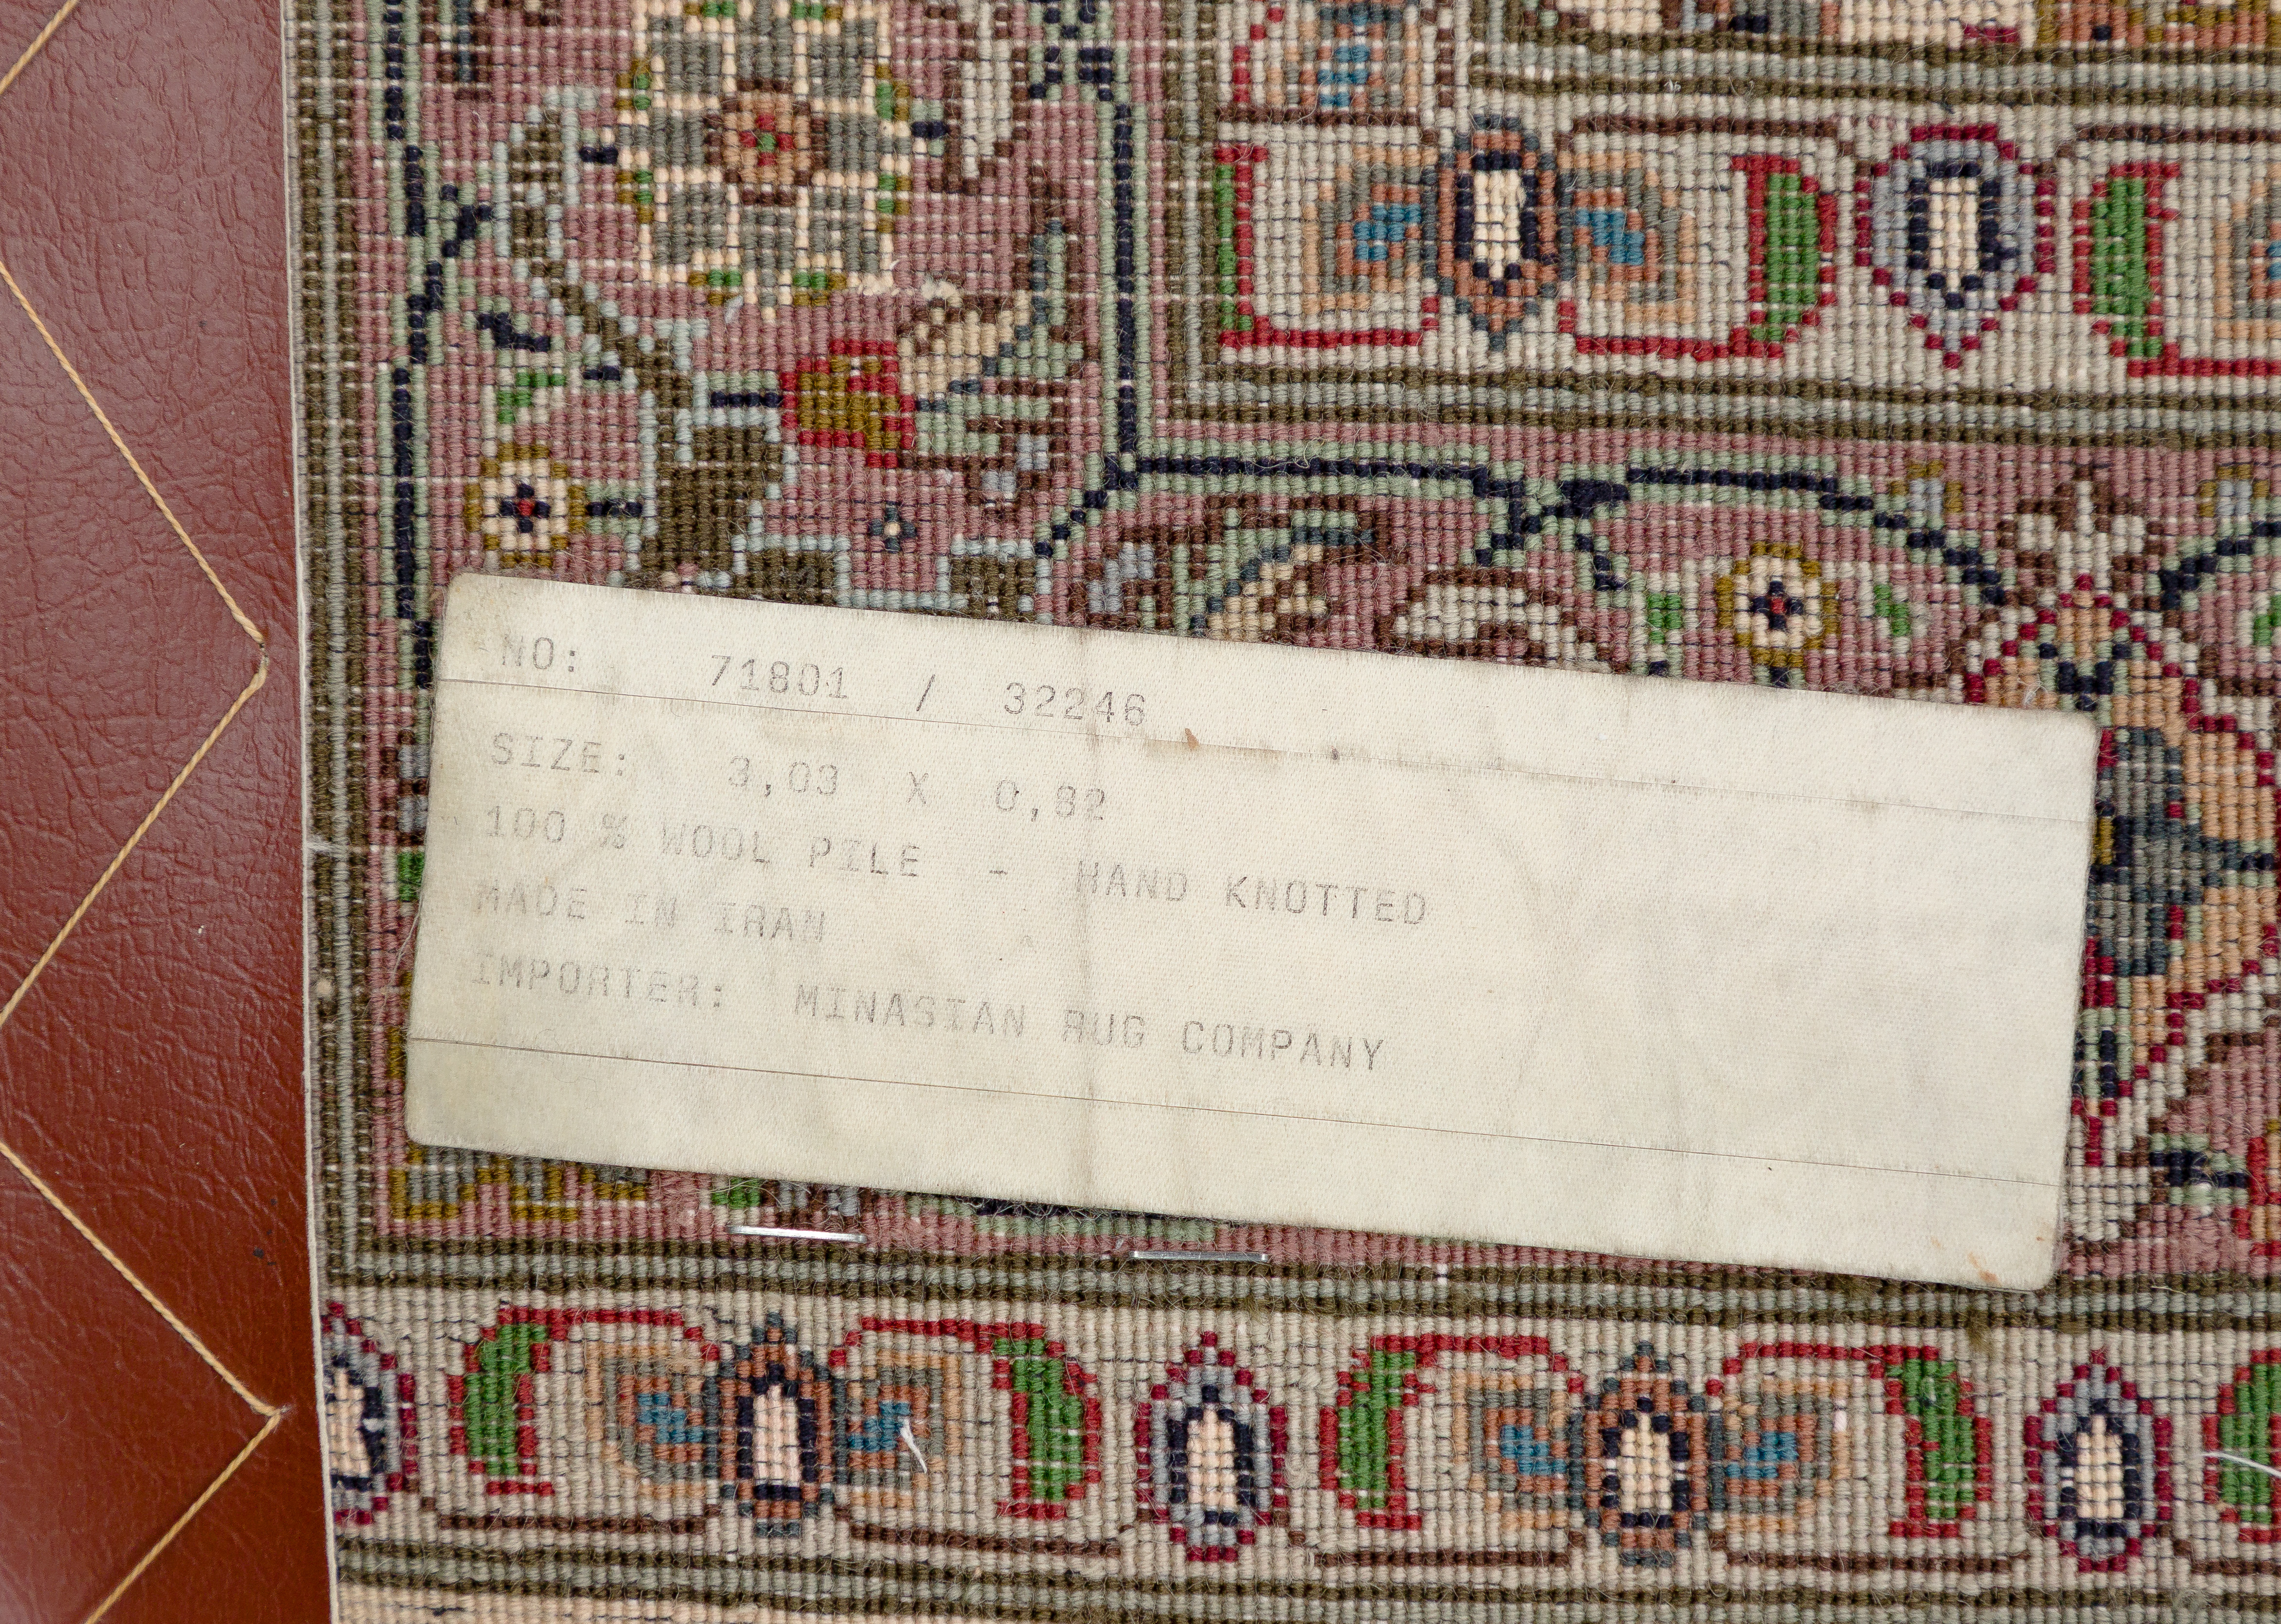 NO: 71801 / 32246
SIZE: 3,03 X 0,82
100 % WOOL PILE - HAND KNOTTED
MADE IN IRAN
IMPORTER: MINASIAN RUG COMPANY